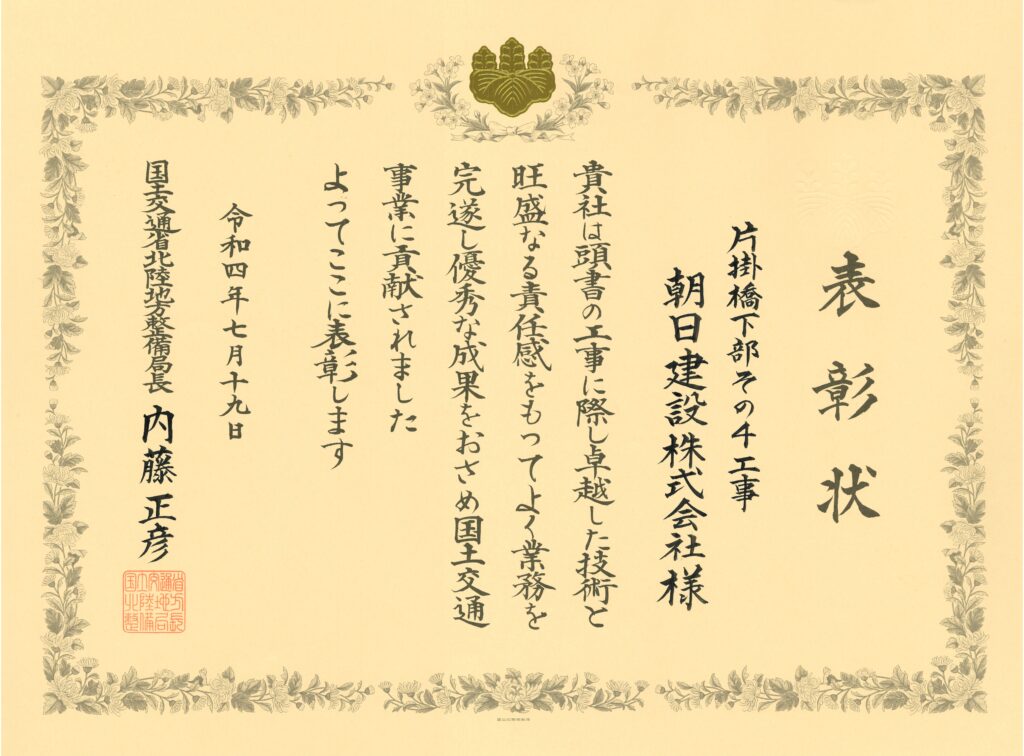 表彰状
片掛橋下部その4工事
朝日建設株式会社様
貴社は頭書の工事に際し卓越した技術と
旺盛なる責任感をもってよく業務を
完遂し優秀な成果をおさめ国土交通
事業に貢献されました
よってここに表彰します
令和四年七月十九日
国土交通省北陸地方整備局長 内藤正彦